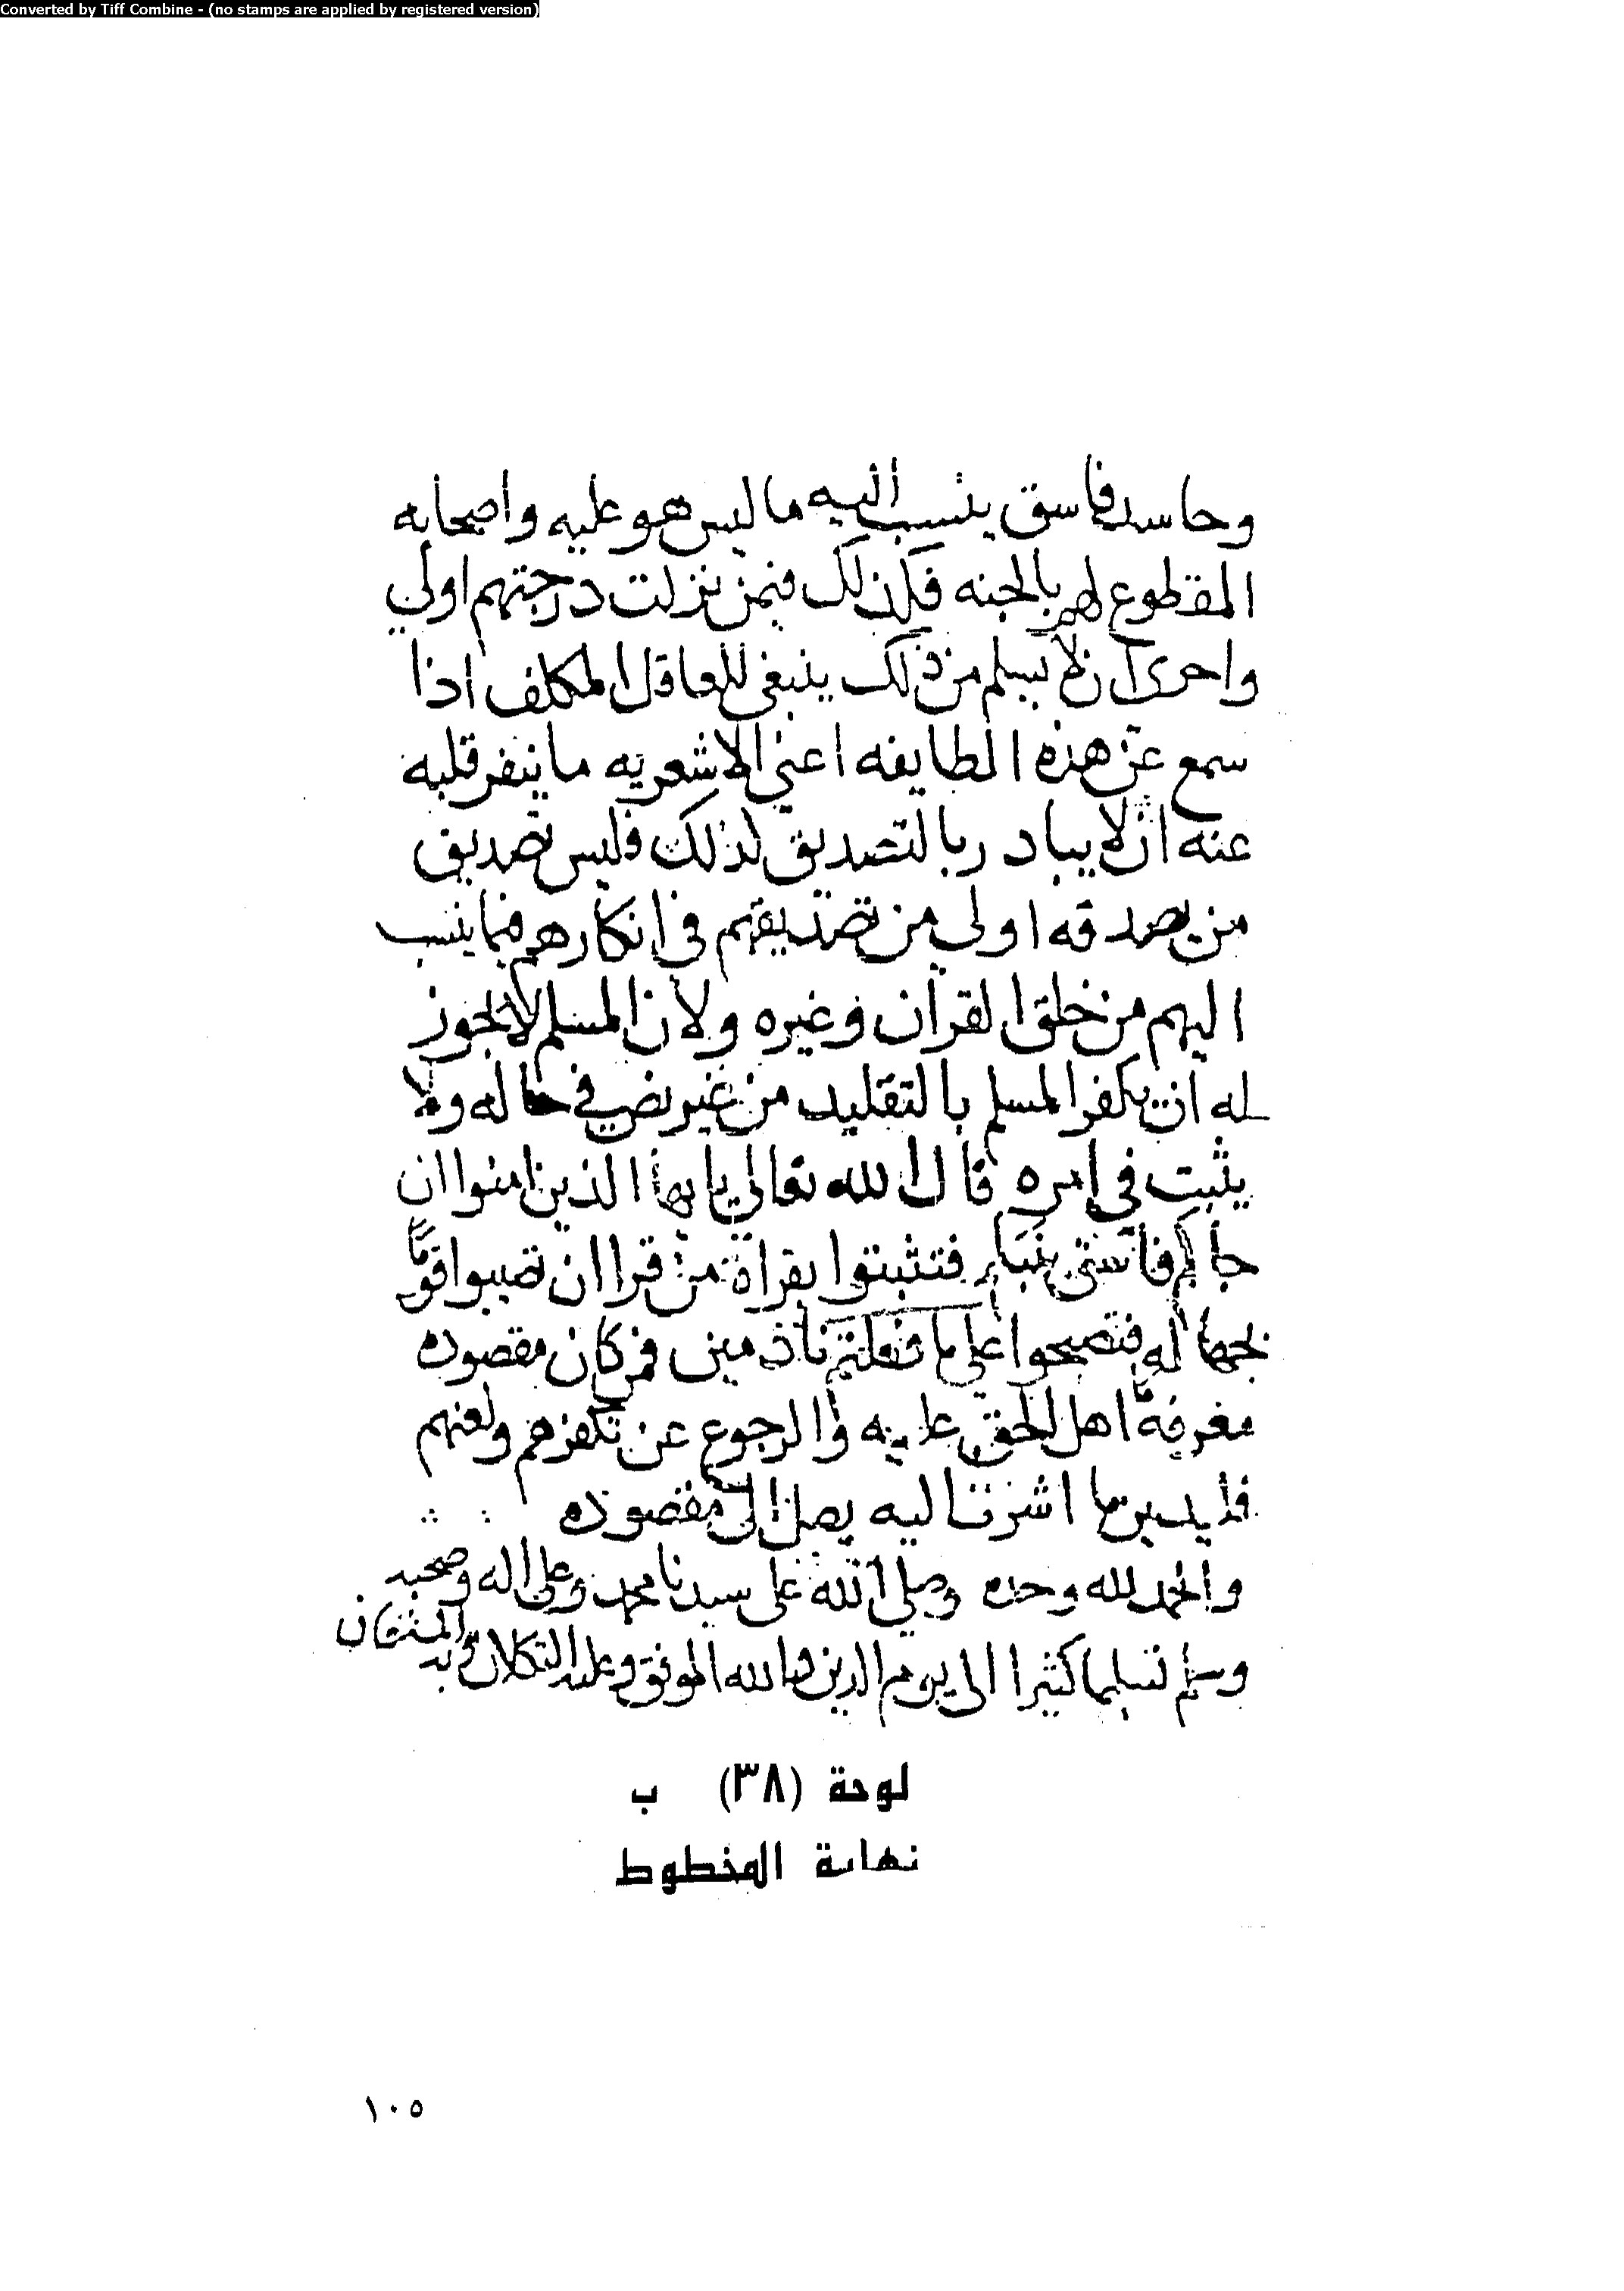 Converted by Tiff Combine - (no stamps are applied by registered version)
وحاسد فاسق ينسب اليه ما ليس هو عليه واصحابه
المقطوع لهم بالجنه فكذلك فيمن نزلت درجتهم اولي
واحرى ان لا يسلم من ذلك ينبغي للعاقل المكلف اذا
سمع عن هذه الطايفه اعني الاشعريه ما ينفر قلبه
عنه ان لا يبادر بالتصديق لذلك فليس تصديق
من يصدقه اولى من تصديقهم في انكارهم فيما ينسب
اليهم من خلق القرآن وغيره ولان المسلم لا يجوز
له ان يكفر المسلم بالتقليد من غير نص في حاله ولا
يثبت في امره قال الله تعالي يا يها الذين امنوا ان
جاكم فاسق بنباء فتثبتوا بقراة من قرا ان تصيبوا قوما
بجهاله فتصبحوا علي ما فعلتم نادمين فمن كان مقصوده
معرفة اهل الحق عليه والرجوع عن تكفيرهم ولعنهم
ما اشرت اليه يصل الى مقصوده
والحمد لله وحده وصلي الله على سيدنا محمد وعلى اله وصحبه
وسلم تسليما كثيرا الى يوم الدين والله الموفق وعليه التكلان وبه
المستعان
لوحة (٣٨) ب
نهاية المخطوط
١٠٥